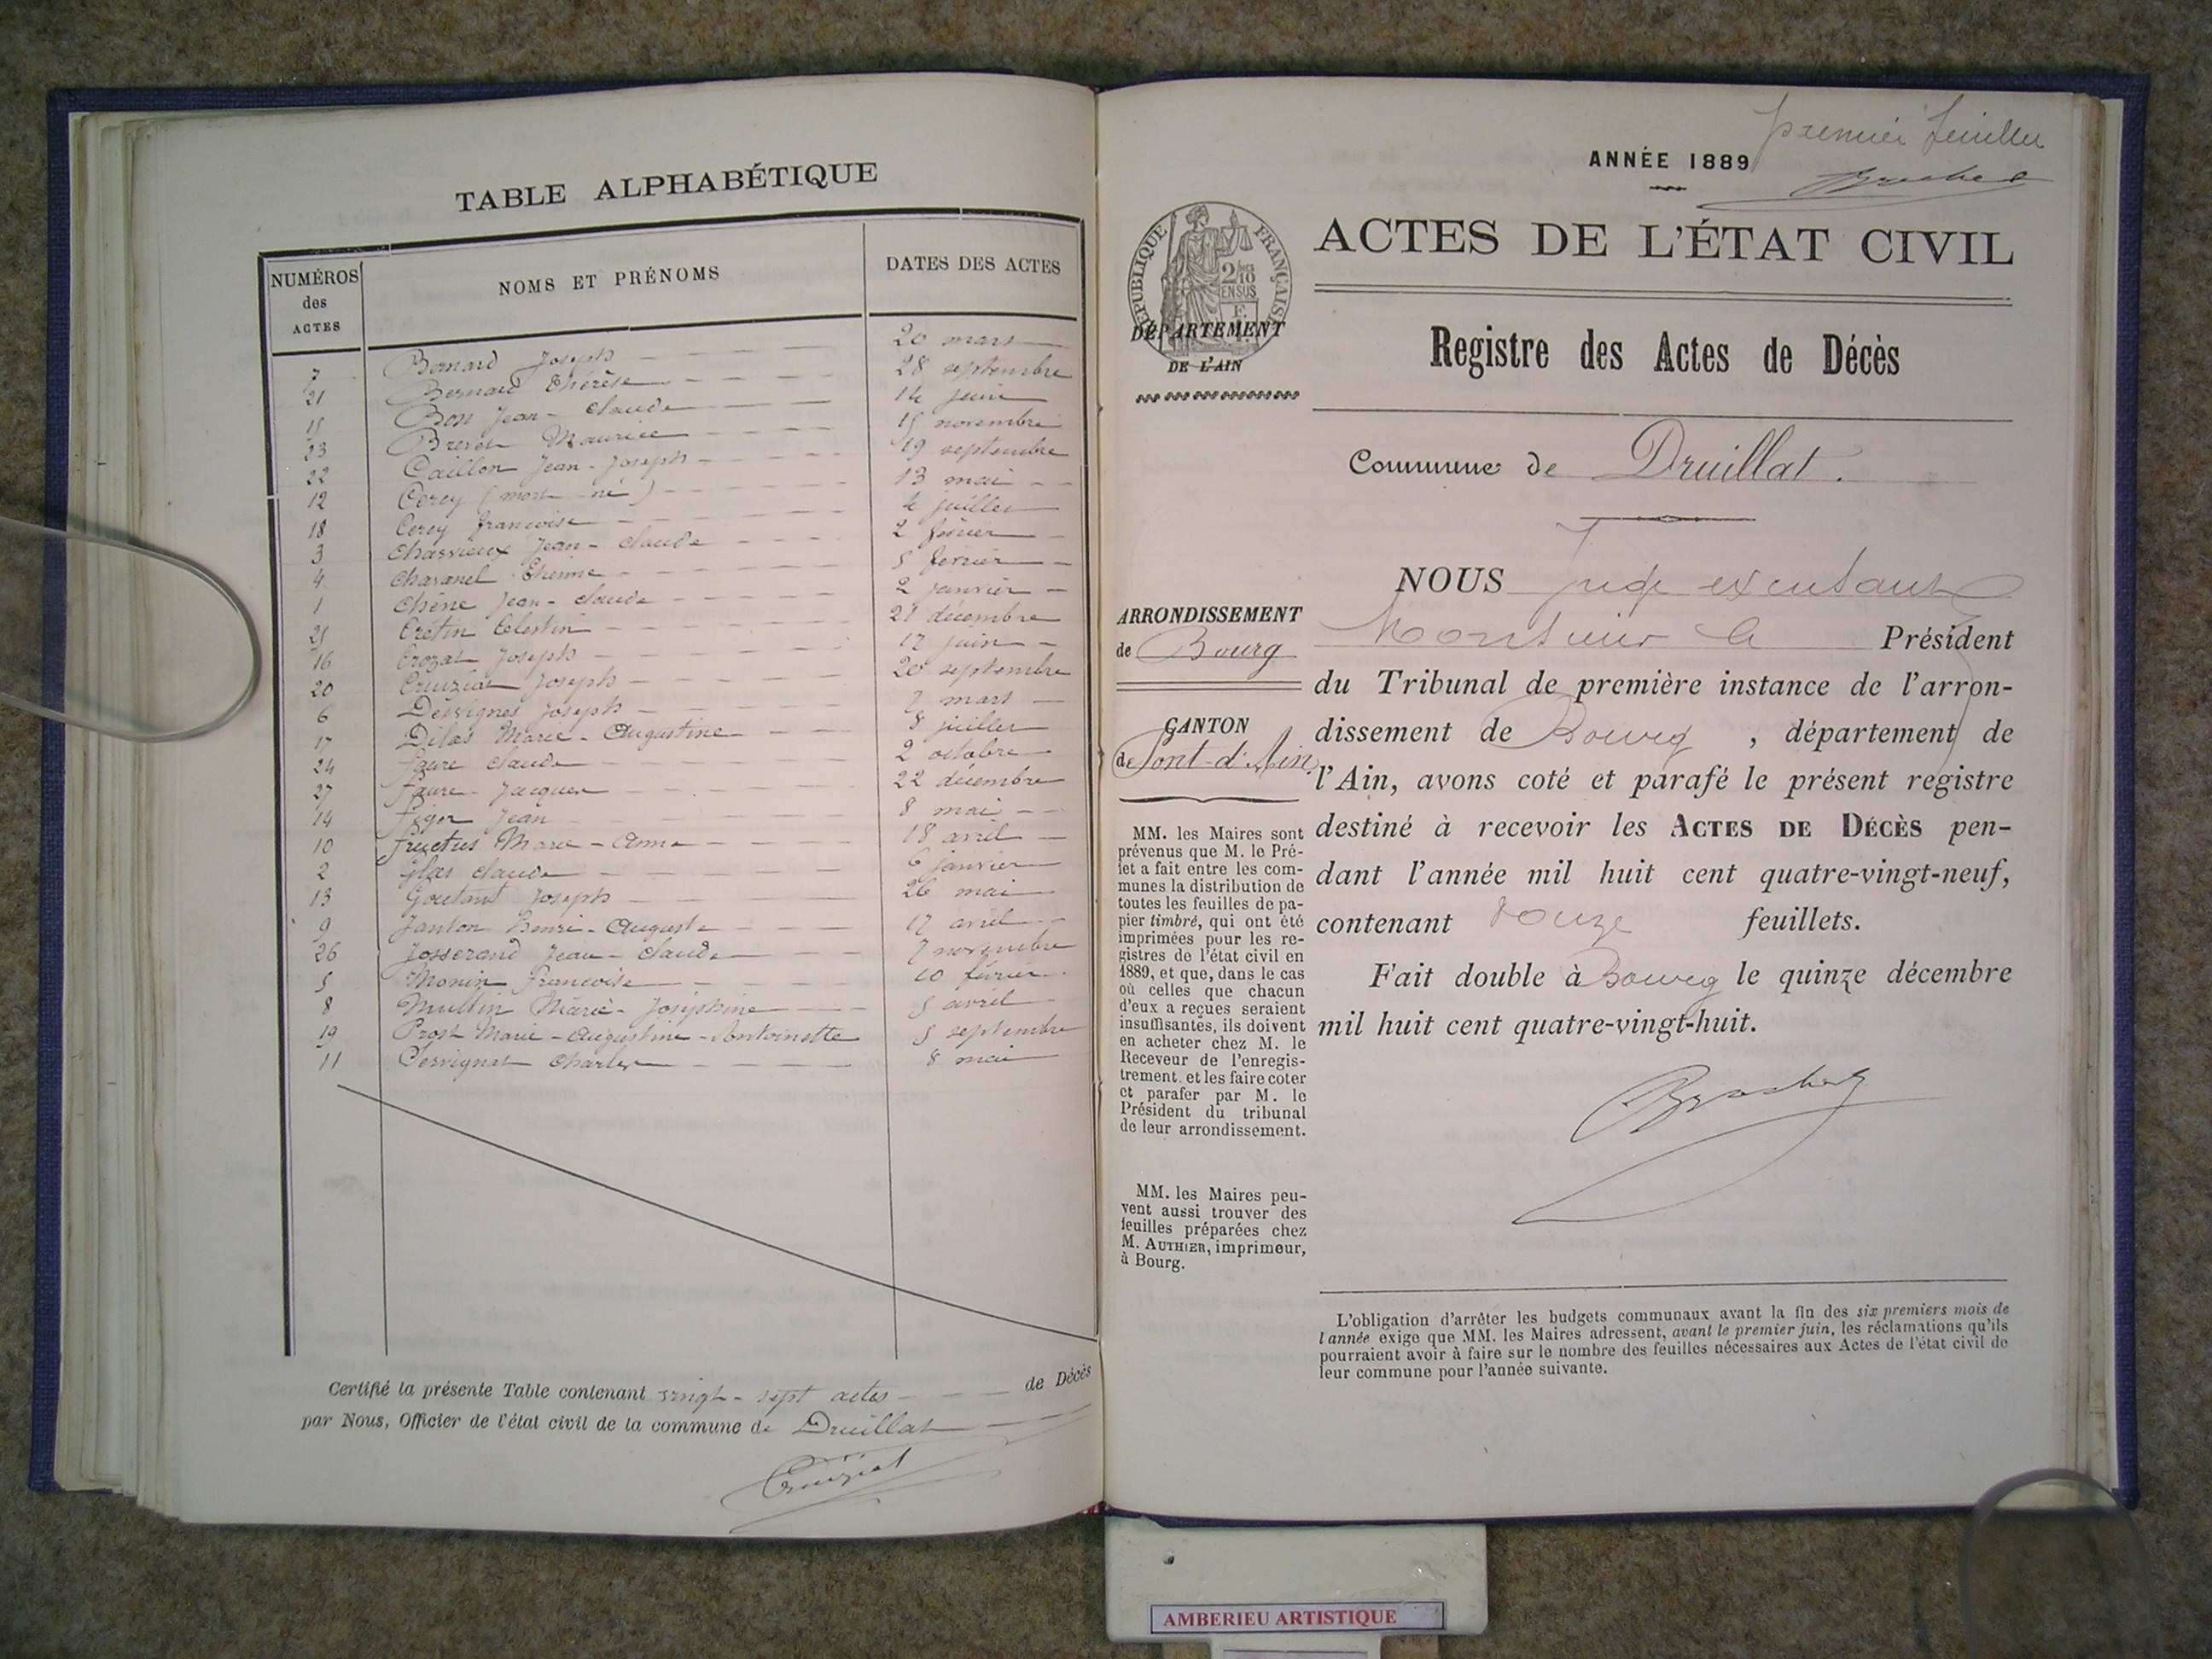 TABLE ALPHABÉTIQUE
NUMÉROS des ACTES NOMS ET PRÉNOMS DATES DES ACTES
7 Bernard Joseph 20 mars
21 Bernard Thérèse 28 septembre
15 Bon Jean-Claude 14 juin
23 Maurice 15 novembre
22 Caillon Jean-Joseph 19 septembre
12 Cerey (mort-né) 13 mai
18 Cerey françoise 4 juillet
3 Chassieux Jean-Claude 2 février
4 Chavanel Etienne 5 février
1 Chêne Jean-Claude 2 janvier
25 Crétin Célestin 21 décembre
16 Crozat Joseph 17 juin
20 Cruiziat Joseph 20 septembre
6 Désvignes Joseph 7 mars
17 Dilas Marie-Augustine 8 juillet
24 faure Claude 2 octobre
27 faure Jacques 22 décembre
14 Jean 8 mai
10 fructus Marie-Anne 18 avril
2 Glas Claude 6 janvier
13 Goutant Joseph 26 mai
9 Janton Henri-Auguste 17 avril
26 Josserand Jean-Claude 7 novembre
5 Monin Françoise 10 février
8 Multin Marie-Joséphine 5 avril
19 Prost Marie-Augustine-Antoinette 5 septembre
11 Servignat Charles 8 mai
Certifié la présente Table contenant vingt-sept actes de Décès
par Nous, Officier de l'état civil de la commune de Druillat
Cruiziat
premier feuillet
ANNÉE 1889
RÉPUBLIQUE FRANÇAISE
2/10 EN SUS
ACTES DE L'ÉTAT CIVIL
DÉPARTEMENT
DE L'AIN
Registre des Actes de Décès
Commune de Druillat.
ARRONDISSEMENT
de Bourg
CANTON
de Pont-d'Ain
MM. les Maires sont
prévenus que M. le Pré-
fet a fait entre les com-
munes la distribution de
toutes les feuilles de pa-
pier timbré, qui ont été
imprimées pour les re-
gistres de l'état civil en
1889, et que, dans le cas
où celles que chacun
d'eux a reçues seraient
insuffisantes, ils doivent
en acheter chez M. le
Receveur de l'enregis-
trement. et les faire coter
et parafer par M. le
Président du tribunal
de leur arrondissement.
MM. les Maires peu-
vent aussi trouver des
feuilles préparées chez
M. AUTHIER, imprimeur,
à Bourg.
NOUS Juge
Monsieur le Président
du Tribunal de première instance de l'arron-
dissement de Bourg, département de
l'Ain, avons coté et parafé le présent registre
destiné à recevoir les ACTES DE DÉCÈS pen-
dant l'année mil huit cent quatre-vingt-neuf,
contenant douze feuillets.
Fait double à Bourg le quinze décembre
mil huit cent quatre-vingt-huit.
L'obligation d'arrêter les budgets communaux avant la fin des six premiers mois de
l'année exige que MM. les Maires adressent, avant le premier juin, les réclamations qu'ils
pourraient avoir à faire sur le nombre des feuilles nécessaires aux Actes de l'état civil de
leur commune pour l'année suivante.
AMBERIEU ARTISTIQUE